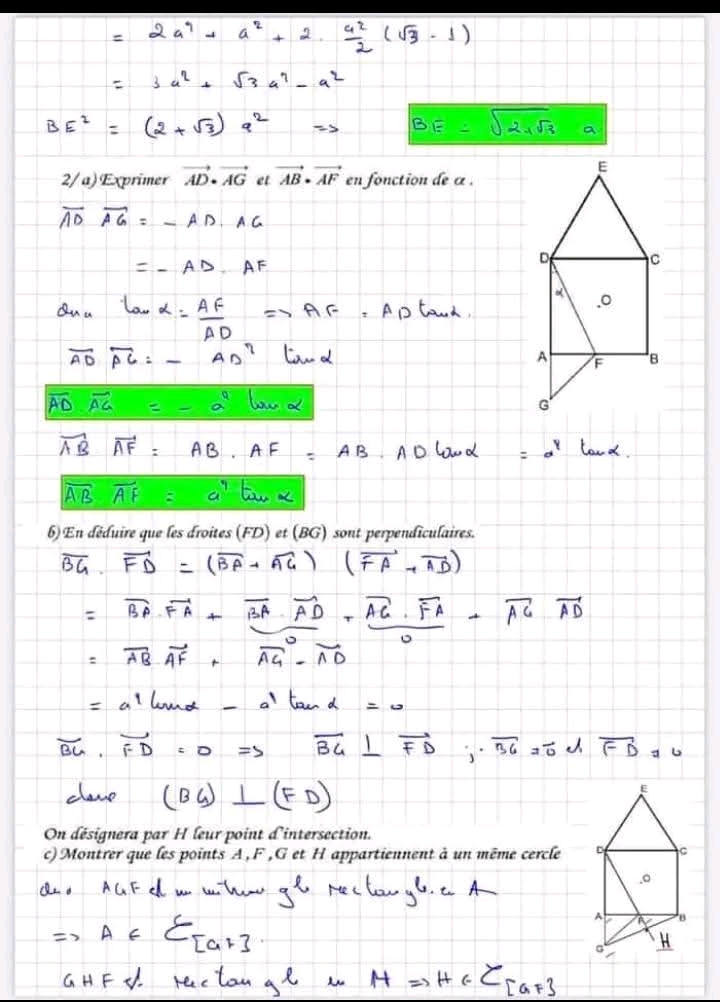 = 2a² + a² + 2 · a²/2 (√3 - 1)
= 3a² + √3 a² - a²
BE² = (2 + √3) a² => BE = √2+√3 a
2/ a) Exprimer AD • AG et AB • AF en fonction de α.
AD AG = - AD. AG
= - AD. AF
tan α = AF/AD => AF = AD tan α.
AD AG = - AD² tan α
AD. AG = - a² tan α
AB AF = AB. AF = AB. AD tan α = a² tan α.
AB. AF = a² tan α
E
D
C
α
.O
A
F
B
G
b) En déduire que les droites (FD) et (BG) sont perpendiculaires.
BG. FD = (BA + AG) (FA + AD)
= BA. FA + BA. AD + AG. FA + AG AD
0 0
= AB AF + AG - AD
= a² tan α - a² tan α = 0
BG. FD = 0 => BG ⊥ FD BG ≠ 0 et FD ≠ 0
donc (BG) ⊥ (FD)
On désignera par H leur point d'intersection.
c) Montrer que les points A, F, G et H appartiennent à un même cercle
AGF est un triangle rectangle en A
=> A ∈ C[GF].
GHF est rectangle en H => H ∈ C[GF]
E
D
C
.O
A
F
B
G
H